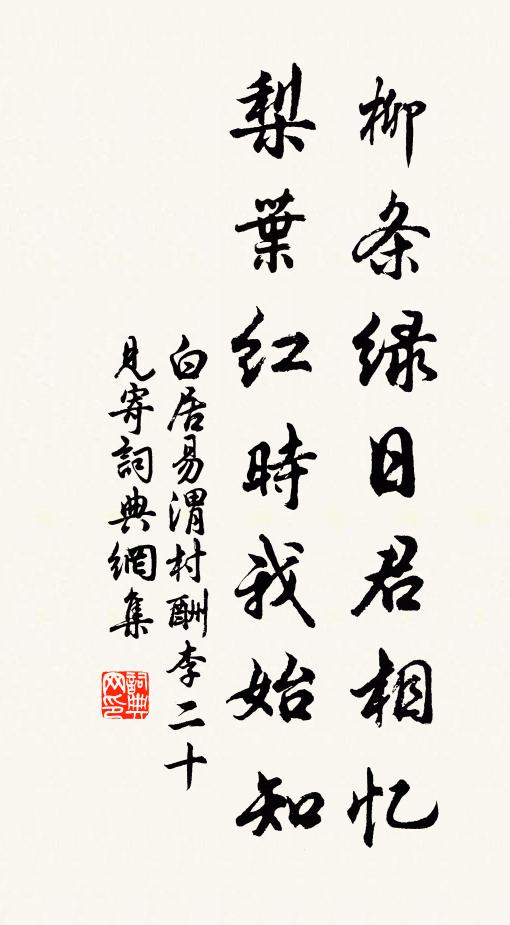 柳条绿日君相忆
梨葉红時我始知
白居易渭村酬李二十
见寄詞典網集
詞典网印